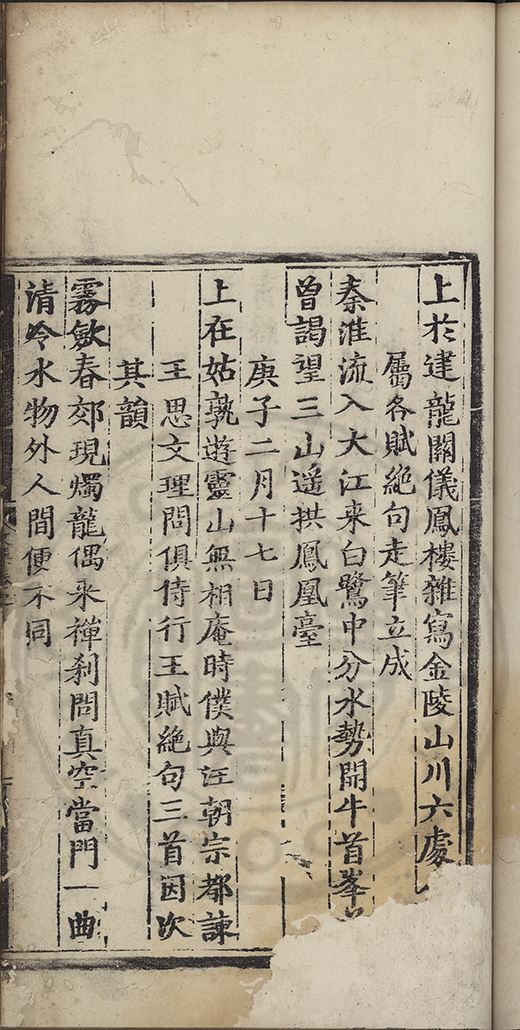 上於建龍關儀鳳樓雜寫金陵山川六處
屬各賦絶句走筆立成
秦淮流入大江来白鷺中分水勢開牛首峯
曾謁望三山遥拱鳳凰臺
庚子二月十七日
上在姑孰遊靈山無相庵時僕與汪朝宗都諫
王思文理問俱侍行王賦絶句三首因次
其韻
霧斂春郊現燭龍偶來禪刹問真空當門一曲
清泠水物外人間便不同